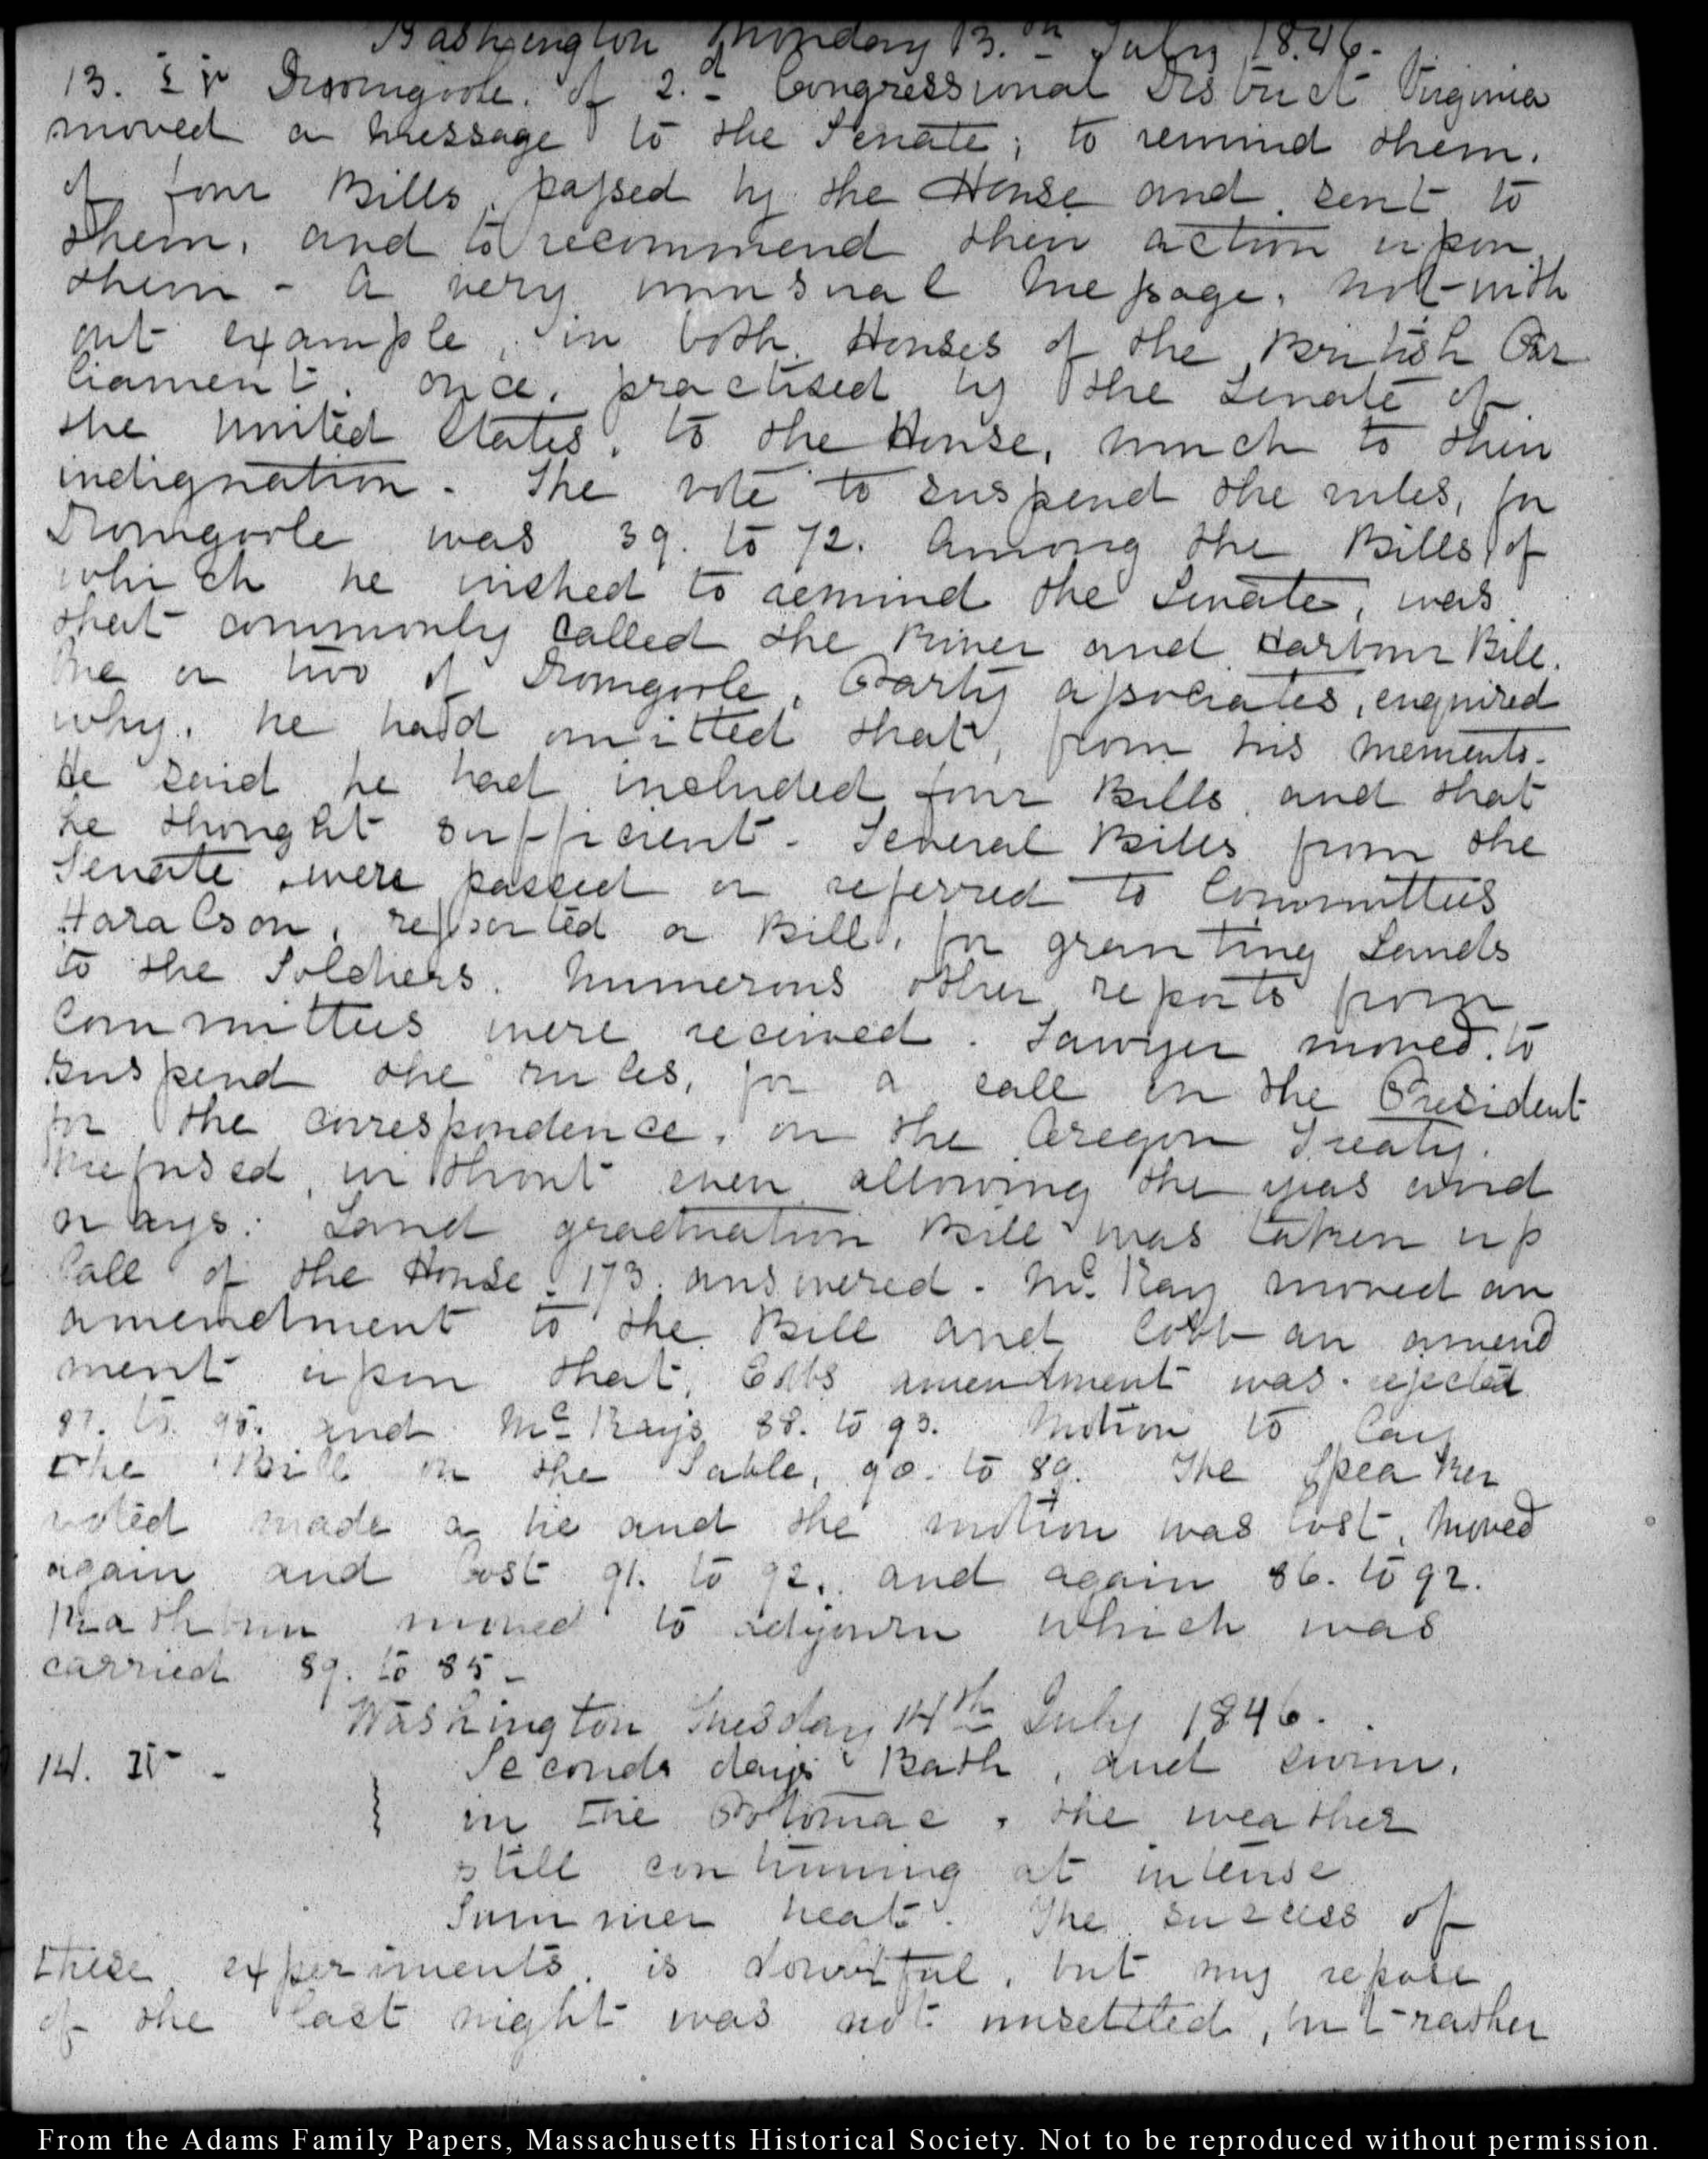 Washington Monday 13.th July 1846.
13. Dromgoole. of 2.d Congressional District Virginia
moved a message to the Senate; to remind them.
of four Bills, passed by the House and sent to
them, and to recommend their action upon
them - a very unusual message, not with
out example, in both Houses of the British Par
liament. once, practised by the Senate of
the United States, to the House, much to their
indignation. The vote to suspend the rules, for
Dromgoole was 39. to 72. Among the Bills of
which he wished to remind the Senate, was
that commonly called the River and Harbour Bill.
One or two of Dromgoole, Party associates, enquired
why, he had omitted that, from his memento.
He said he had included four Bills, and that
he thought sufficient. Several Bills from the
Senate were passed or referred to Committees
Haralson, reported a Bill, for granting Lands
to the Soldiers. Numerous other reports from
Committees were received. Sawyer moved to
suspend the rules, for a call on the President
for the correspondence, on the Oregon Treaty.
Refused, without even allowing the yeas and
nays. Land graduation Bill was taken up
Call of the House. 173. answered. Mc. Kay moved an
amendment to the Bill and Cobb an amend
ment upon that, Cobbs amendment was rejected
to 95. and Mc Kays 88. to 93. Motion to lay
the Bill on the Table, 90. to 89. The Speaker
voted made a tie and the motion was lost. Moved
again and lost 91. to 92. and again 86. to 92.
Rathbun moved to adjourn which was
carried 89. to 85 -
Washington Tuesday 14th July 1846.
14. IV -
Seconds days Bath, and swim,
in the Potomac, the weather
still continuing at intense
Summer heat. The success of
these experiments is doubtful, but my repose
of the last night was not unsettled, but rather
From the Adams Family Papers, Massachusetts Historical Society. Not to be reproduced without permission.